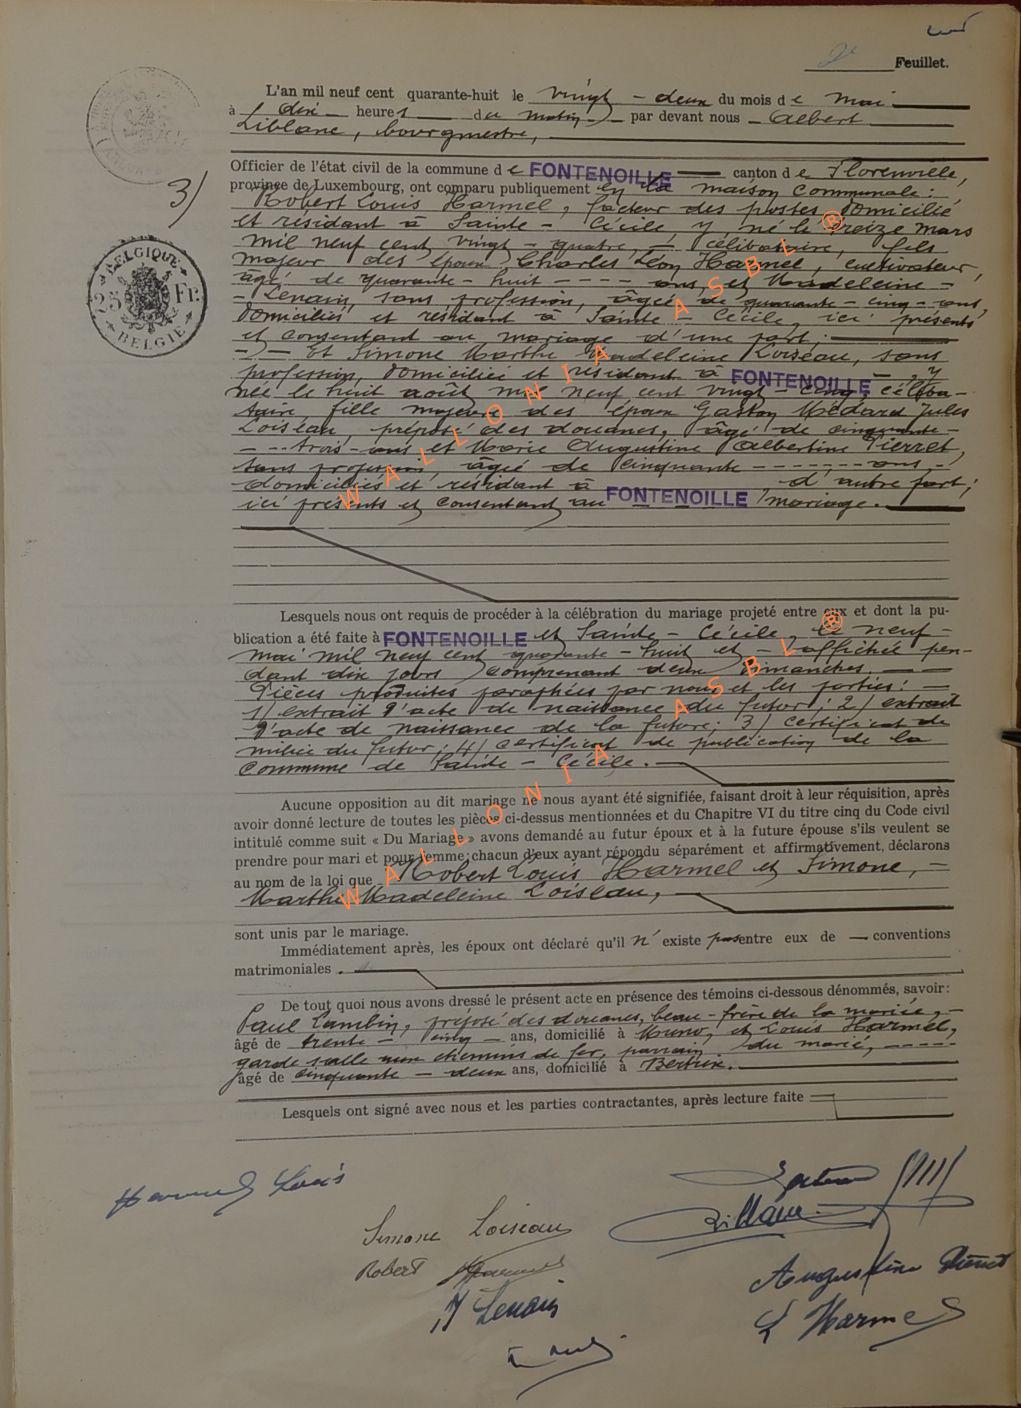 2e Feuillet.
L'an mil neuf cent quarante-huit le vingt - deux du mois de mai
à dix heures du matin par devant nous Albert
Liblanc, bourgmestre,
Officier de l'état civil de la commune de FONTENOILLE canton de Florenville,
3/
province de Luxembourg, ont comparu publiquement en la maison communale :
Robert Louis Harmel, facteur des postes, domicilié
et résidant à Sainte - Cécile, y né le treize mars
mil neuf cent vingt - quatre, célibataire, fils
majeur des époux Charles Léon Harmel, cultivateur,
âgé de quarante - huit - - - - ans, et Madeleine -
- Lenain, sans profession, âgée de quarante - cinq - ans,
domiciliés et résidant à Sainte - Cécile, ici présents
et consentant au mariage d'une part ;
- Et Simone Marthe Madeleine Loiseau, sans
profession, domiciliée et résidant à FONTENOILLE - , y
née le huit août mil neuf cent vingt - cinq, céliba-
taire, fille majeure des époux Gaston Médard Jules
Loiseau, préposé des douanes, âgé de cinquante -
- - - trois - ans et Marie Augustine Albertine Pierret,
sans profession, âgée de cinquante - - - - - - ans,
domiciliés et résidant à FONTENOILLE d'autre part ;
ici présents et consentant au mariage.
BELGIQUE
2 Fr.
BELGIE
Lesquels nous ont requis de procéder à la célébration du mariage projeté entre eux et dont la pu-
blication a été faite à FONTENOILLE et Sainte - Cécile, le neuf -
mai mil neuf cent quarante - huit et - affichée pen-
dant dix jours comprenant deux dimanches.
Pièces produites paraphées par nous et les parties : -
1/ extrait d'acte de naissance du futur ; 2/ extrait
d'acte de naissance de la future ; 3/ certificat de
milice du futur ; 4/ certificat de publication de la
commune de Sainte - Cécile. -
Aucune opposition au dit mariage ne nous ayant été signifiée, faisant droit à leur réquisition, après
avoir donné lecture de toutes les pièces ci-dessus mentionnées et du Chapitre VI du titre cinq du Code civil
intitulé comme suit « Du Mariage » avons demandé au futur époux et à la future épouse s'ils veulent se
prendre pour mari et pour femme; chacun d'eux ayant répondu séparément et affirmativement, déclarons
au nom de la loi que Robert Louis Harmel et Simone, -
Marthe Madeleine Loiseau,
sont unis par le mariage.
Immédiatement après, les époux ont déclaré qu'il n'existe pas entre eux de - conventions
matrimoniales .
De tout quoi nous avons dressé le présent acte en présence des témoins ci-dessous dénommés, savoir :
Paul Lambin, préposé des douanes, beau-frère de la mariée, -
âgé de trente - cinq - ans, domicilié à Muno, et Louis Harmel,
garde salle aux chemins de fer, parrain du marié, - - - - -
âgé de cinquante - deux ans, domicilié à Bertrix.
Lesquels ont signé avec nous et les parties contractantes, après lecture faite
Harmel Louis
Simone Loiseau
Robert Harmel
M Lenain
Augustine Pierret
L Harmel
WALLONIA ASBL ®
WALLONIA ASBL ®